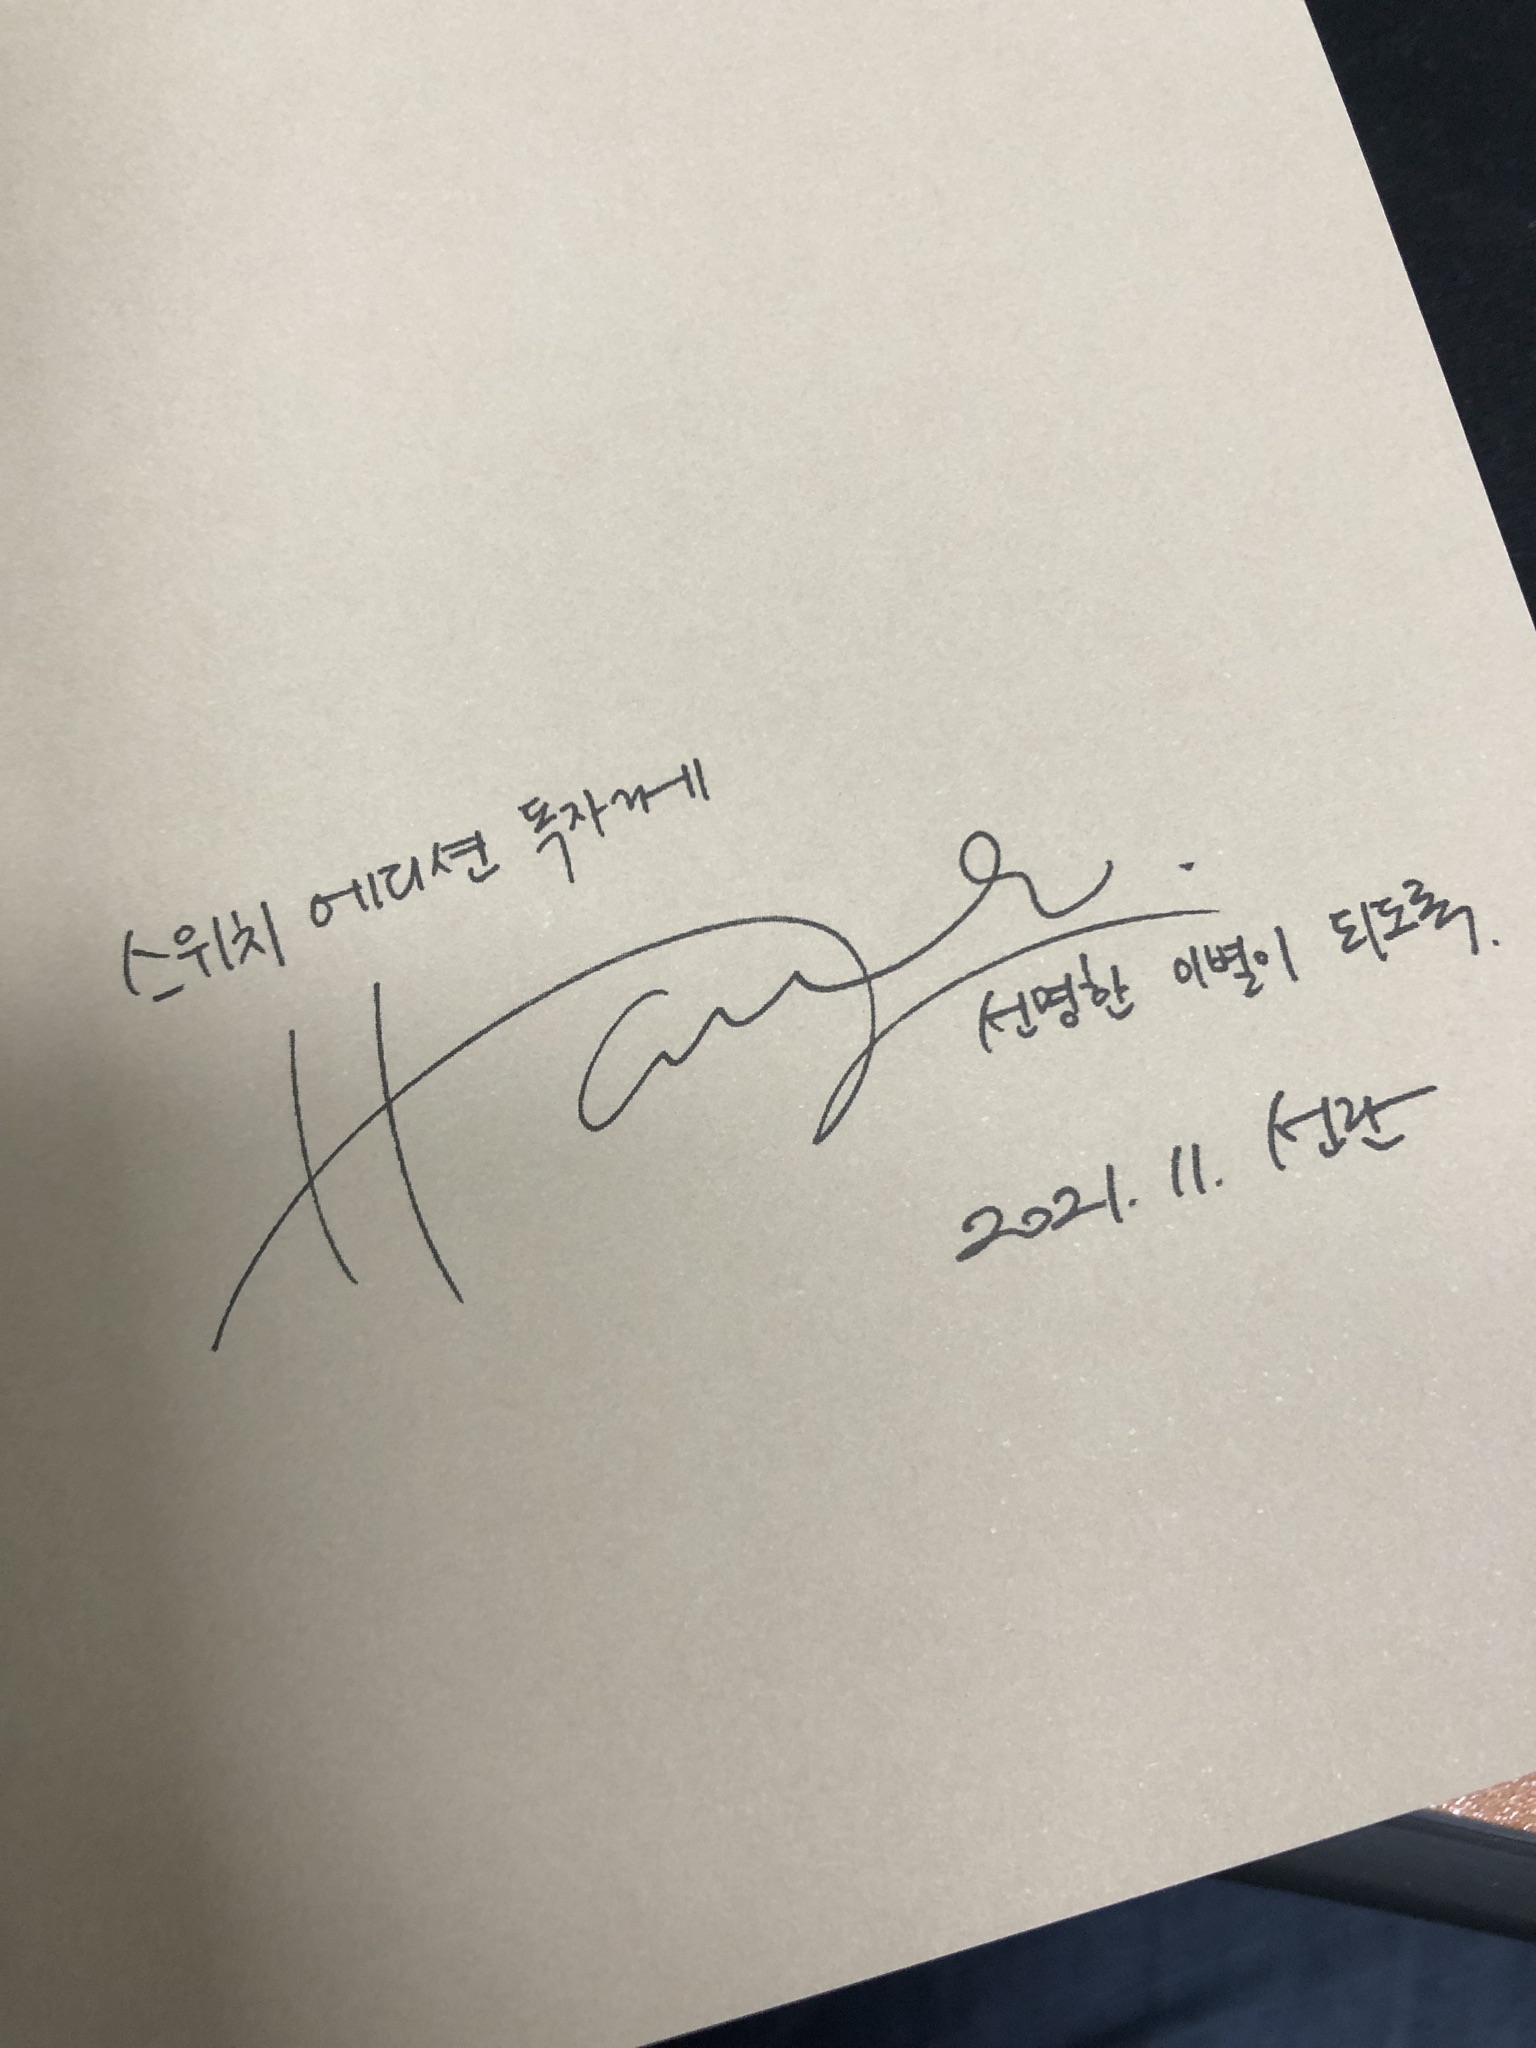 스위치 에디션 독자께
선명한 이별이 되도록.
2021. 11. 선란